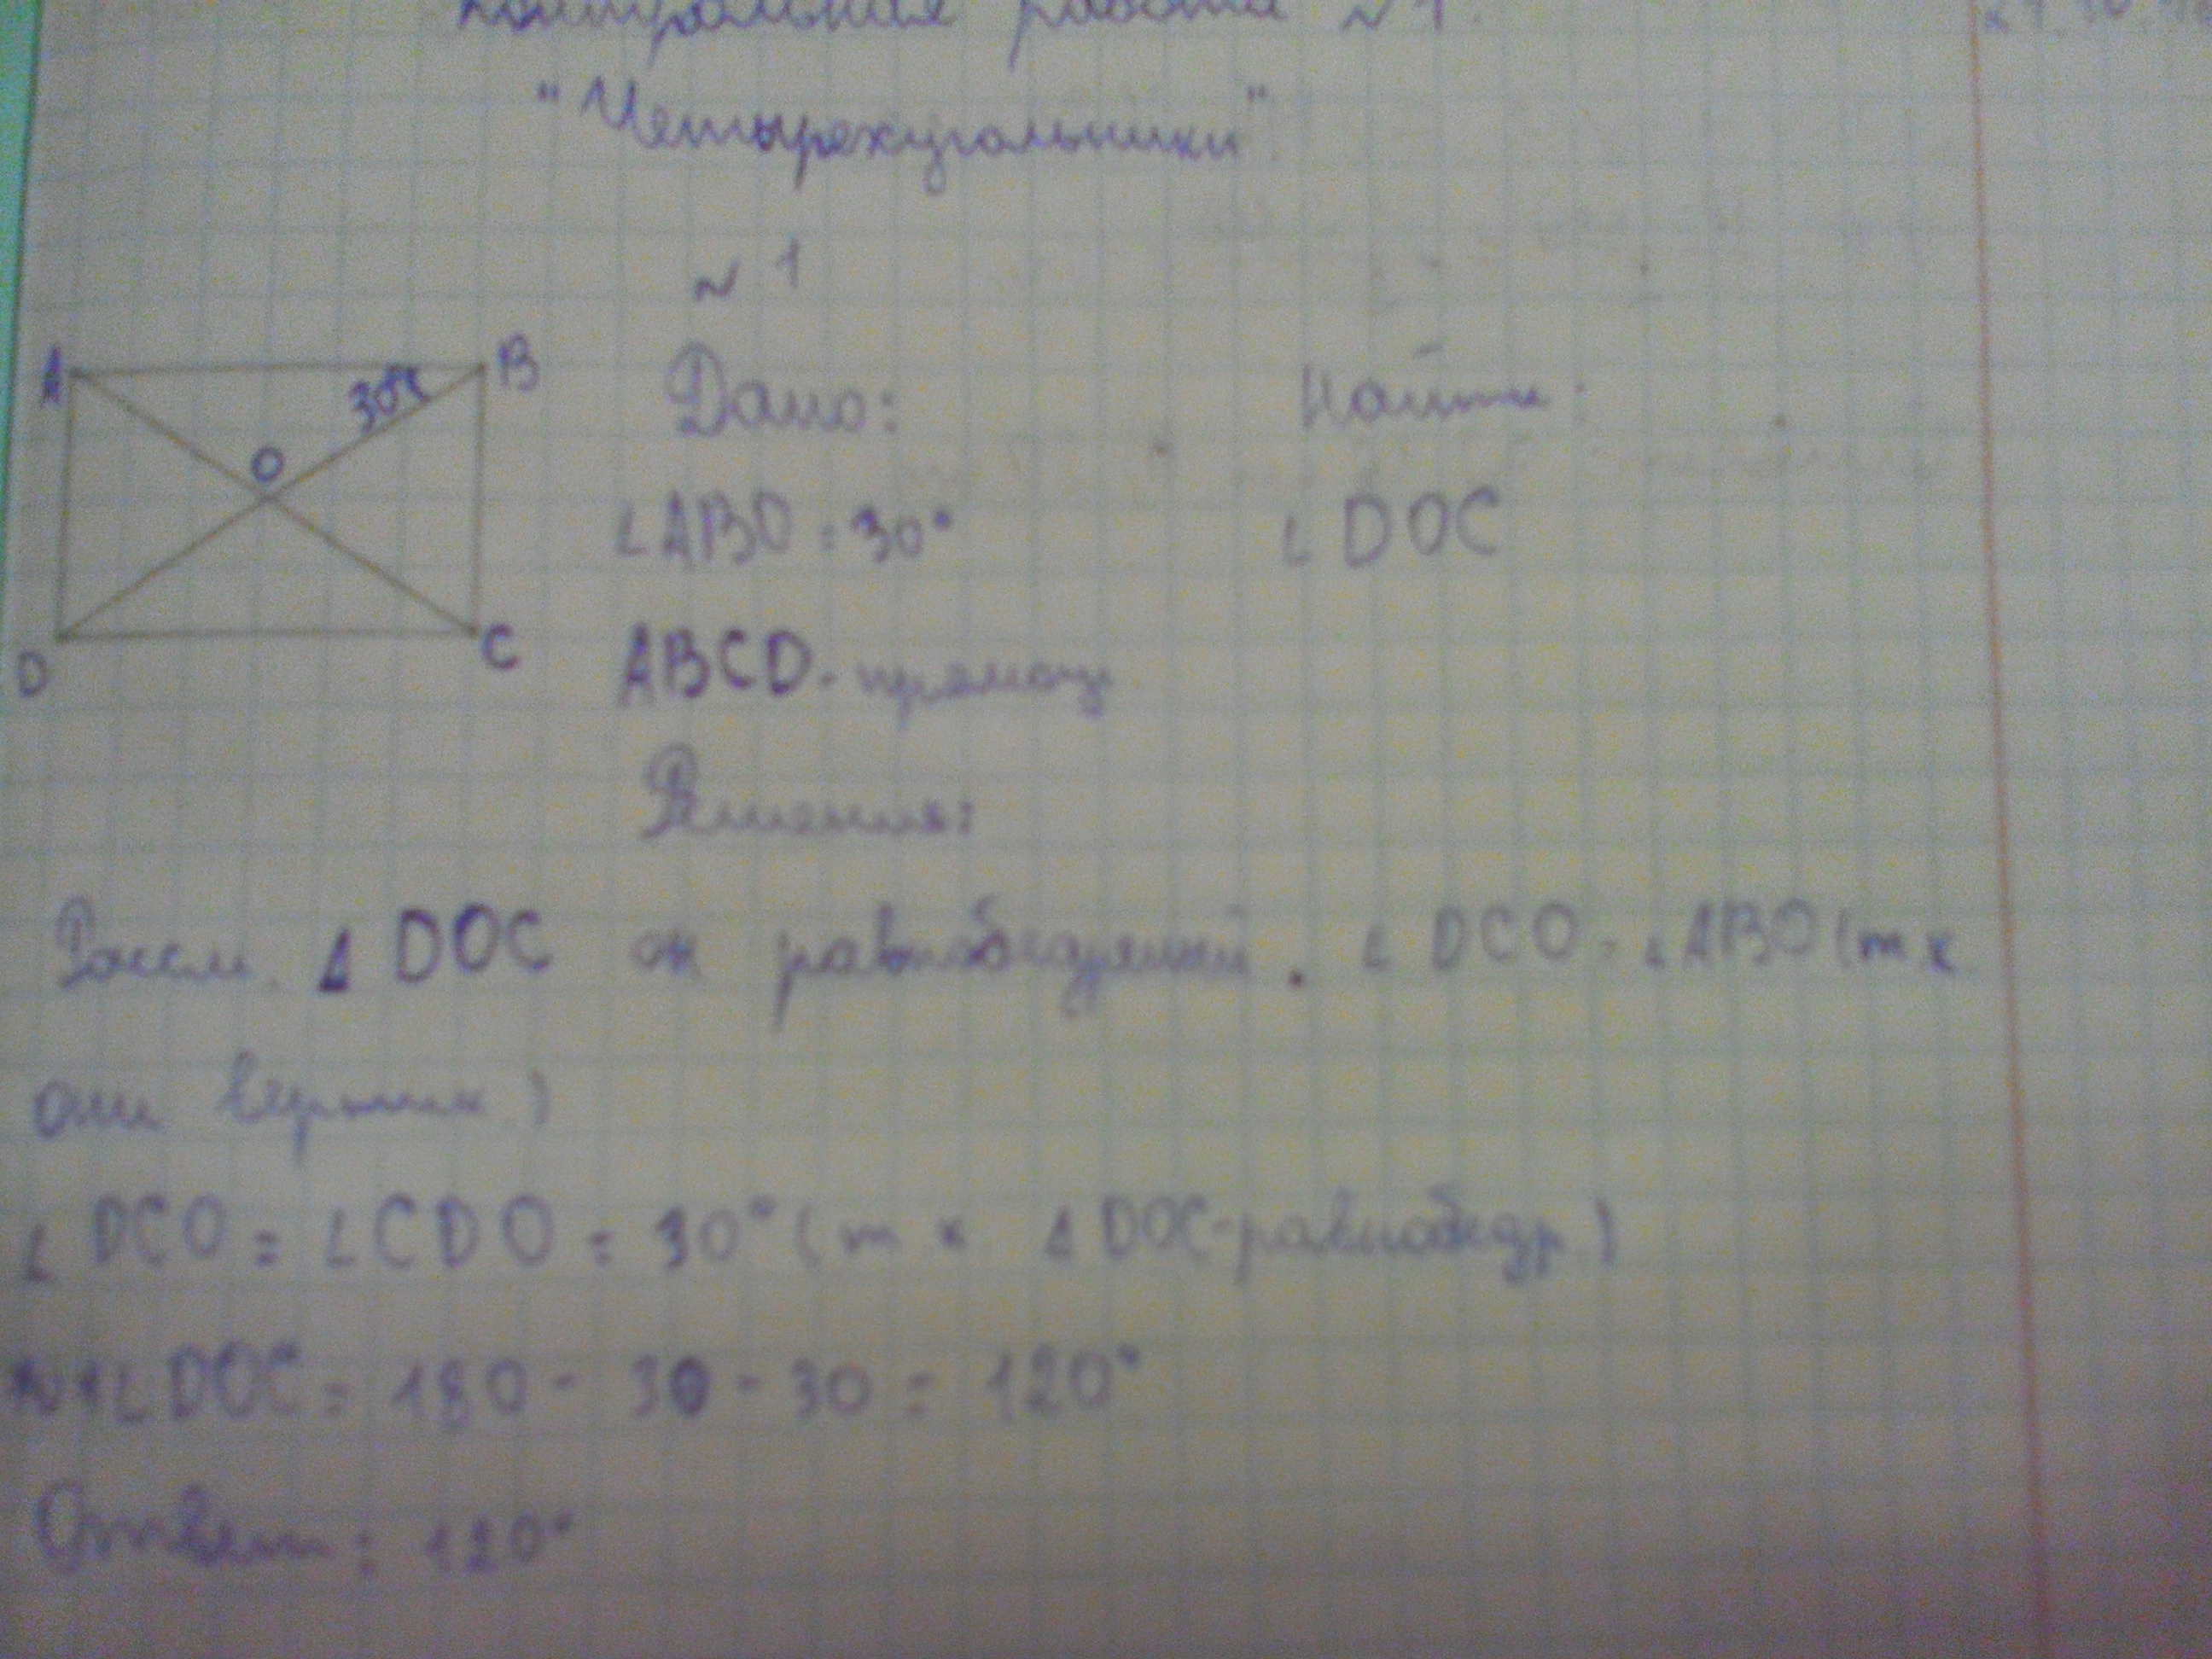 контрольная работа №1.
"Четырехугольники"
№ 1
A B 30° O D C
Дано: Найти:
∠ABO = 30° ∠DOC
ABCD - прямоуг
Решения:
Рассм. Δ DOC он равнобедренный. ∠ DCO = ∠ABO (т к
они вертик)
∠ DCO = ∠CDO = 30° (т к Δ DOC-равнобедр.)
∠DOC = 180 - 30 - 30 = 120°
Ответ: 120°